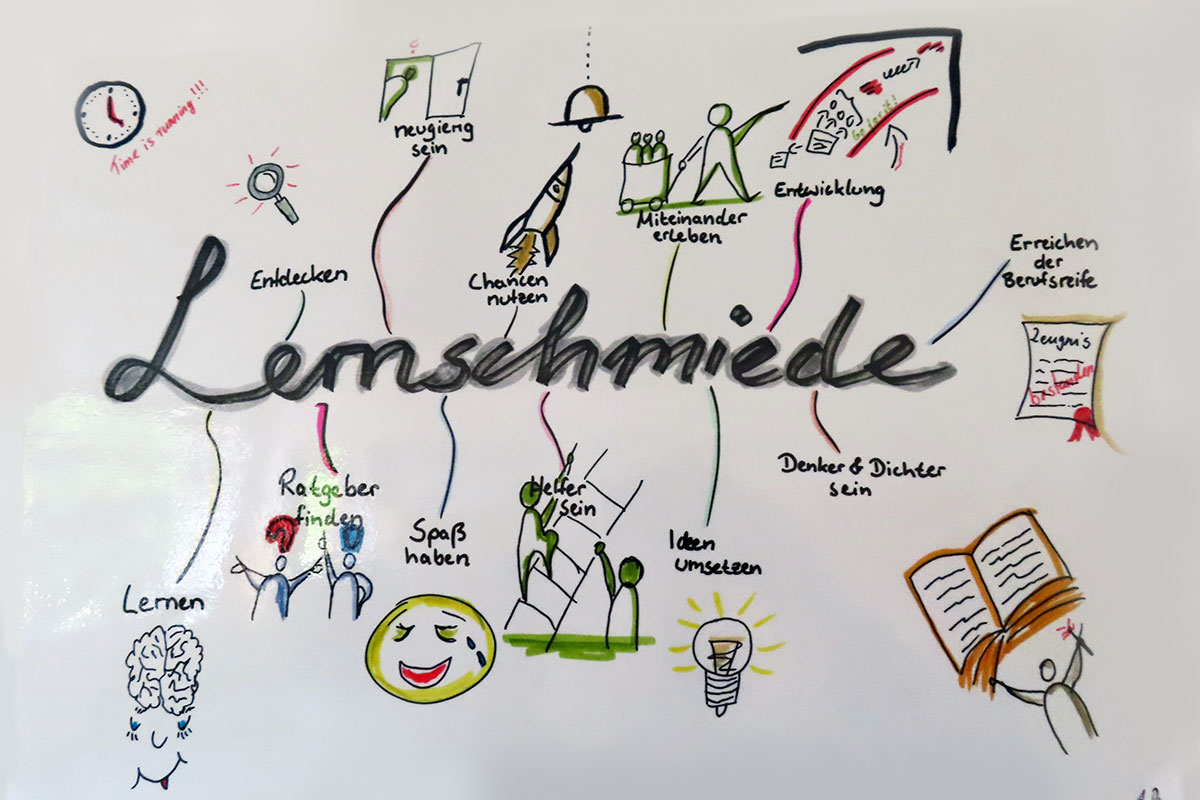 Time is running!!!
neugierig
sein
Entdecken
Chancen
nutzen
Miteinander
erleben
Go for it!
Entwicklung
Erreichen
der
Berufsreife
Zeugnis
bestanden
Lernschmiede
Lernen
Ratgeber
finden
Spaß
haben
Helfer
Sein
Ideen
umsetzen
Denker & Dichter
sein